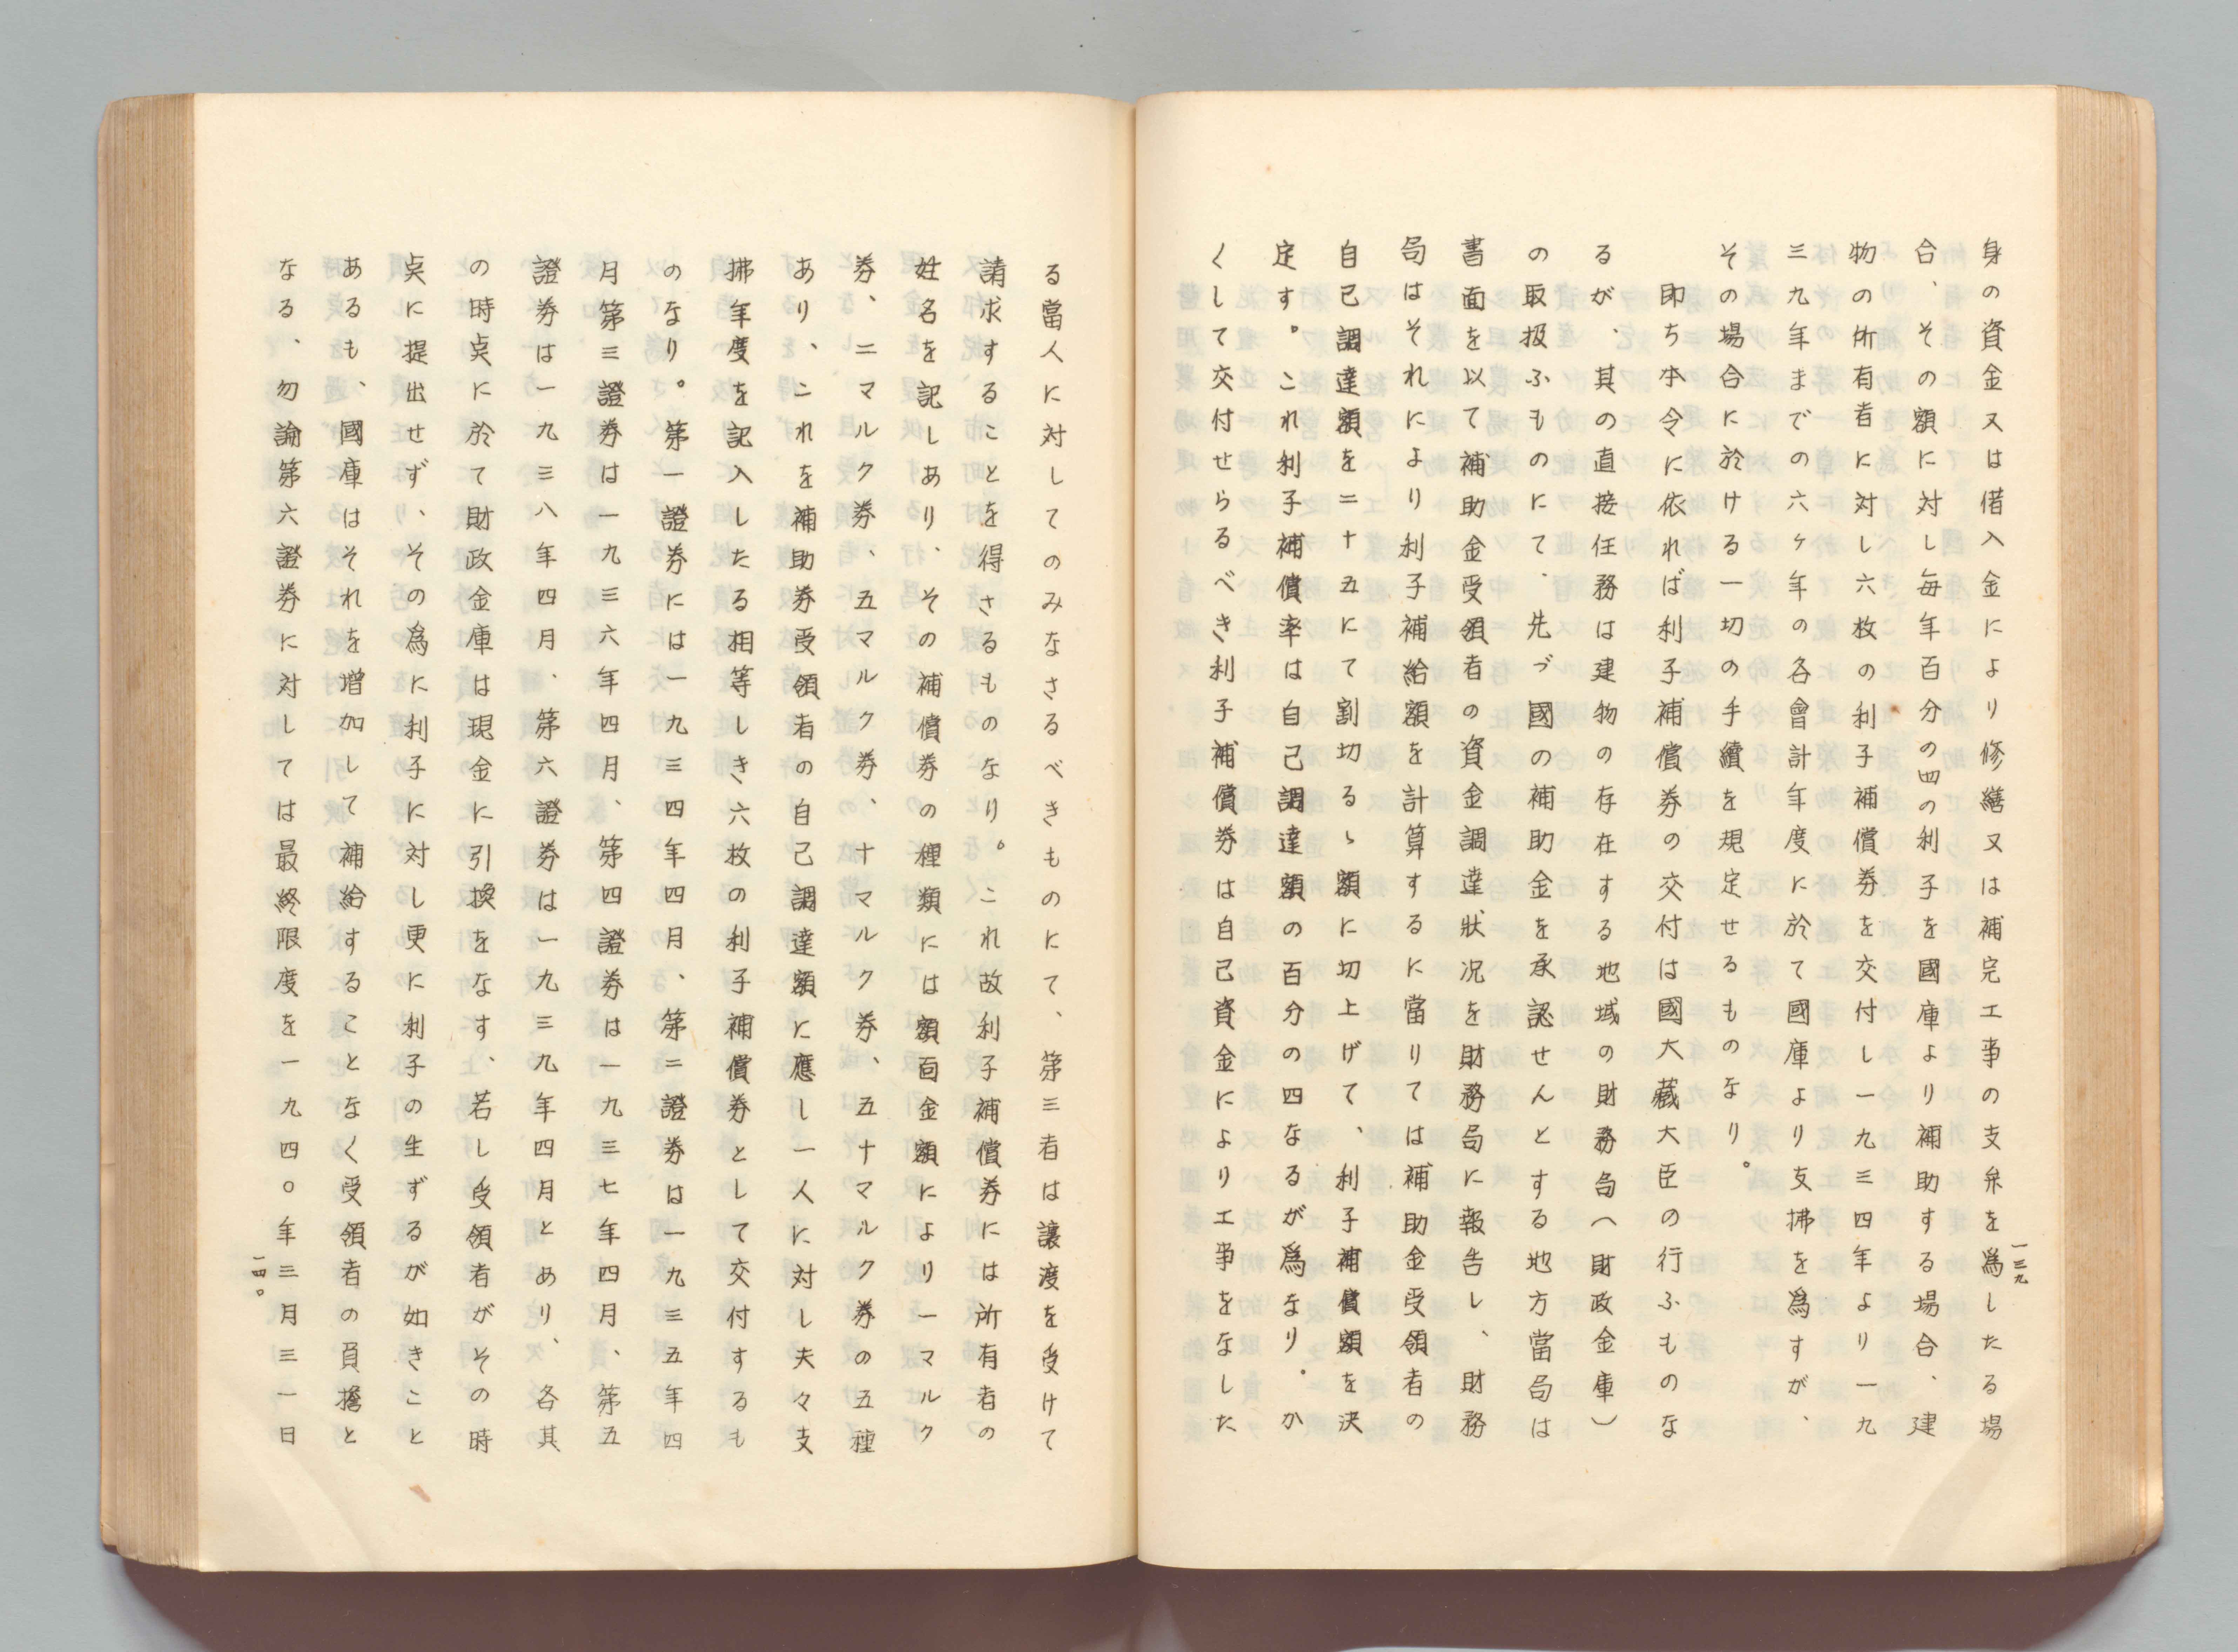 身の資金又は借入金により修繕又は補完工事の支弁を爲したる場
合、その額に対し毎年百分の四の利子を國庫より補助する場合、建
物の所有者に対し六枚の利子補償券を交付し一九三四年より一九
三九年までの六ヶ年の各會計年度に於て國庫より支拂を爲すが、
その場合に於ける一切の手續を規定せるものなり。
即ち本令に依れば利子補償券の交付は國大藏大臣の行ふものな
るが、其の直接任務は建物の存在する地域の財務局(財政金庫)
の取扱ふものにて、先づ國の補助金を承認せんとする地方當局は
書面を以て補助金受領者の資金調達狀况を財務局に報告し、財務
局はそれにより利子補給額を計算するに當りては補助金受領者の
自己調達額を二十五にて割切るゝ額に切上げて、利子補償額を決
定す。これ利子補償率は自己調達額の百分の四なるが爲なり。か
くして交付せらるべき利子補償券は自己資金により工事をなした
一三九
る當人に対してのみなさるべきものにて、第三者は讓渡を受けて
請求することを得ざるものなり。これ故利子補償券には所有者の
姓名を記しあり、その補償券の種類には額面金額により一マルク
券、二マルク券、五マルク券、十マルク券、五十マルク券の五種
あり、これを補助券受領者の自己調達額に應し一人に対し夫々支
拂年度を記入したる相等しき六枚の利子補償券として交付するも
のなり。第一證券には一九三四年四月、第二證券は一九三五年四
月第三證券は一九三六年四月、第四證券は一九三七年四月、第五
證券は一九三八年四月、第六證券は一九三九年四月とあり、各其
の時点に於て財政金庫は現金に引換をなす、若し受領者がその時
点に提出せず、その爲に利子に対し更に利子の生ずるが如きこと
あるも、國庫はそれを増加して補給することなく受領者の負擔と
なる、勿論第六證券に対しては最終限度を一九四〇年三月三一日
一四〇